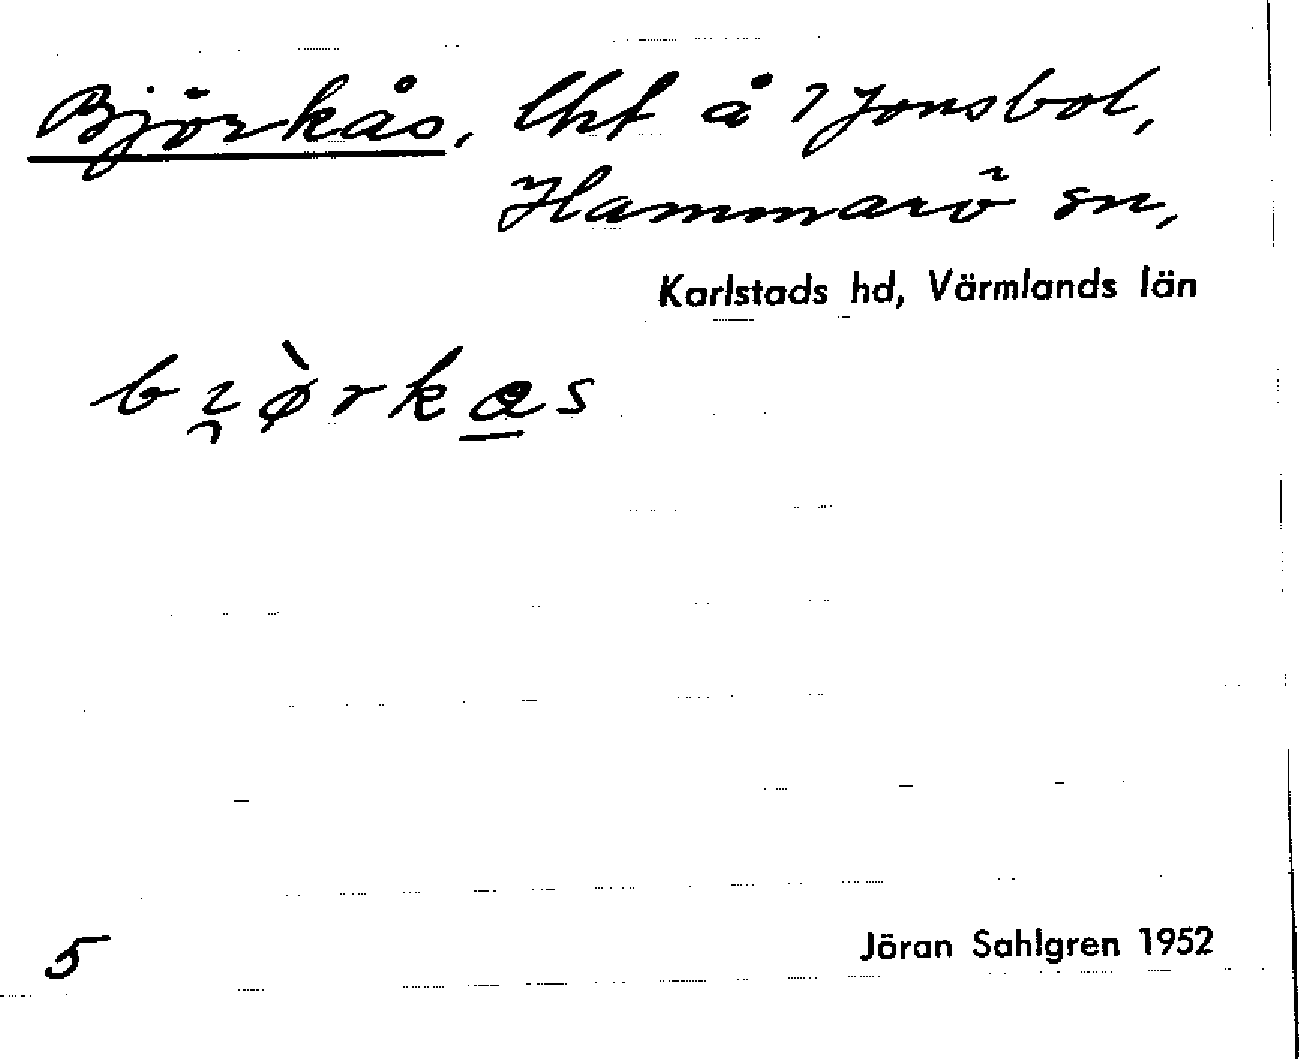 Björkås, lht å 1 Jonsbol,
Hammarö sn,
Karlstads hd, Värmlands län
bi̯ø̀rkɷs
5
Jöran Sahlgren 1952